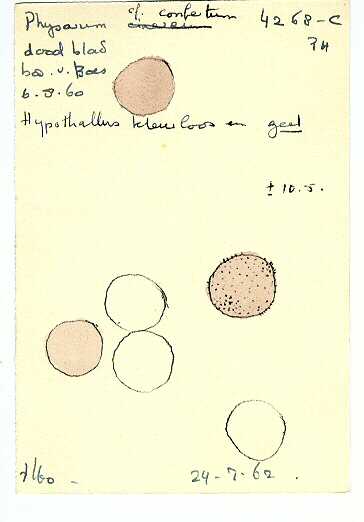 Physarum cf. confertum 4268-C
dood blad
bos v. Boes
6.8.60
Hypothallus kleurloos en geel
± 10.5.
24-7-62.